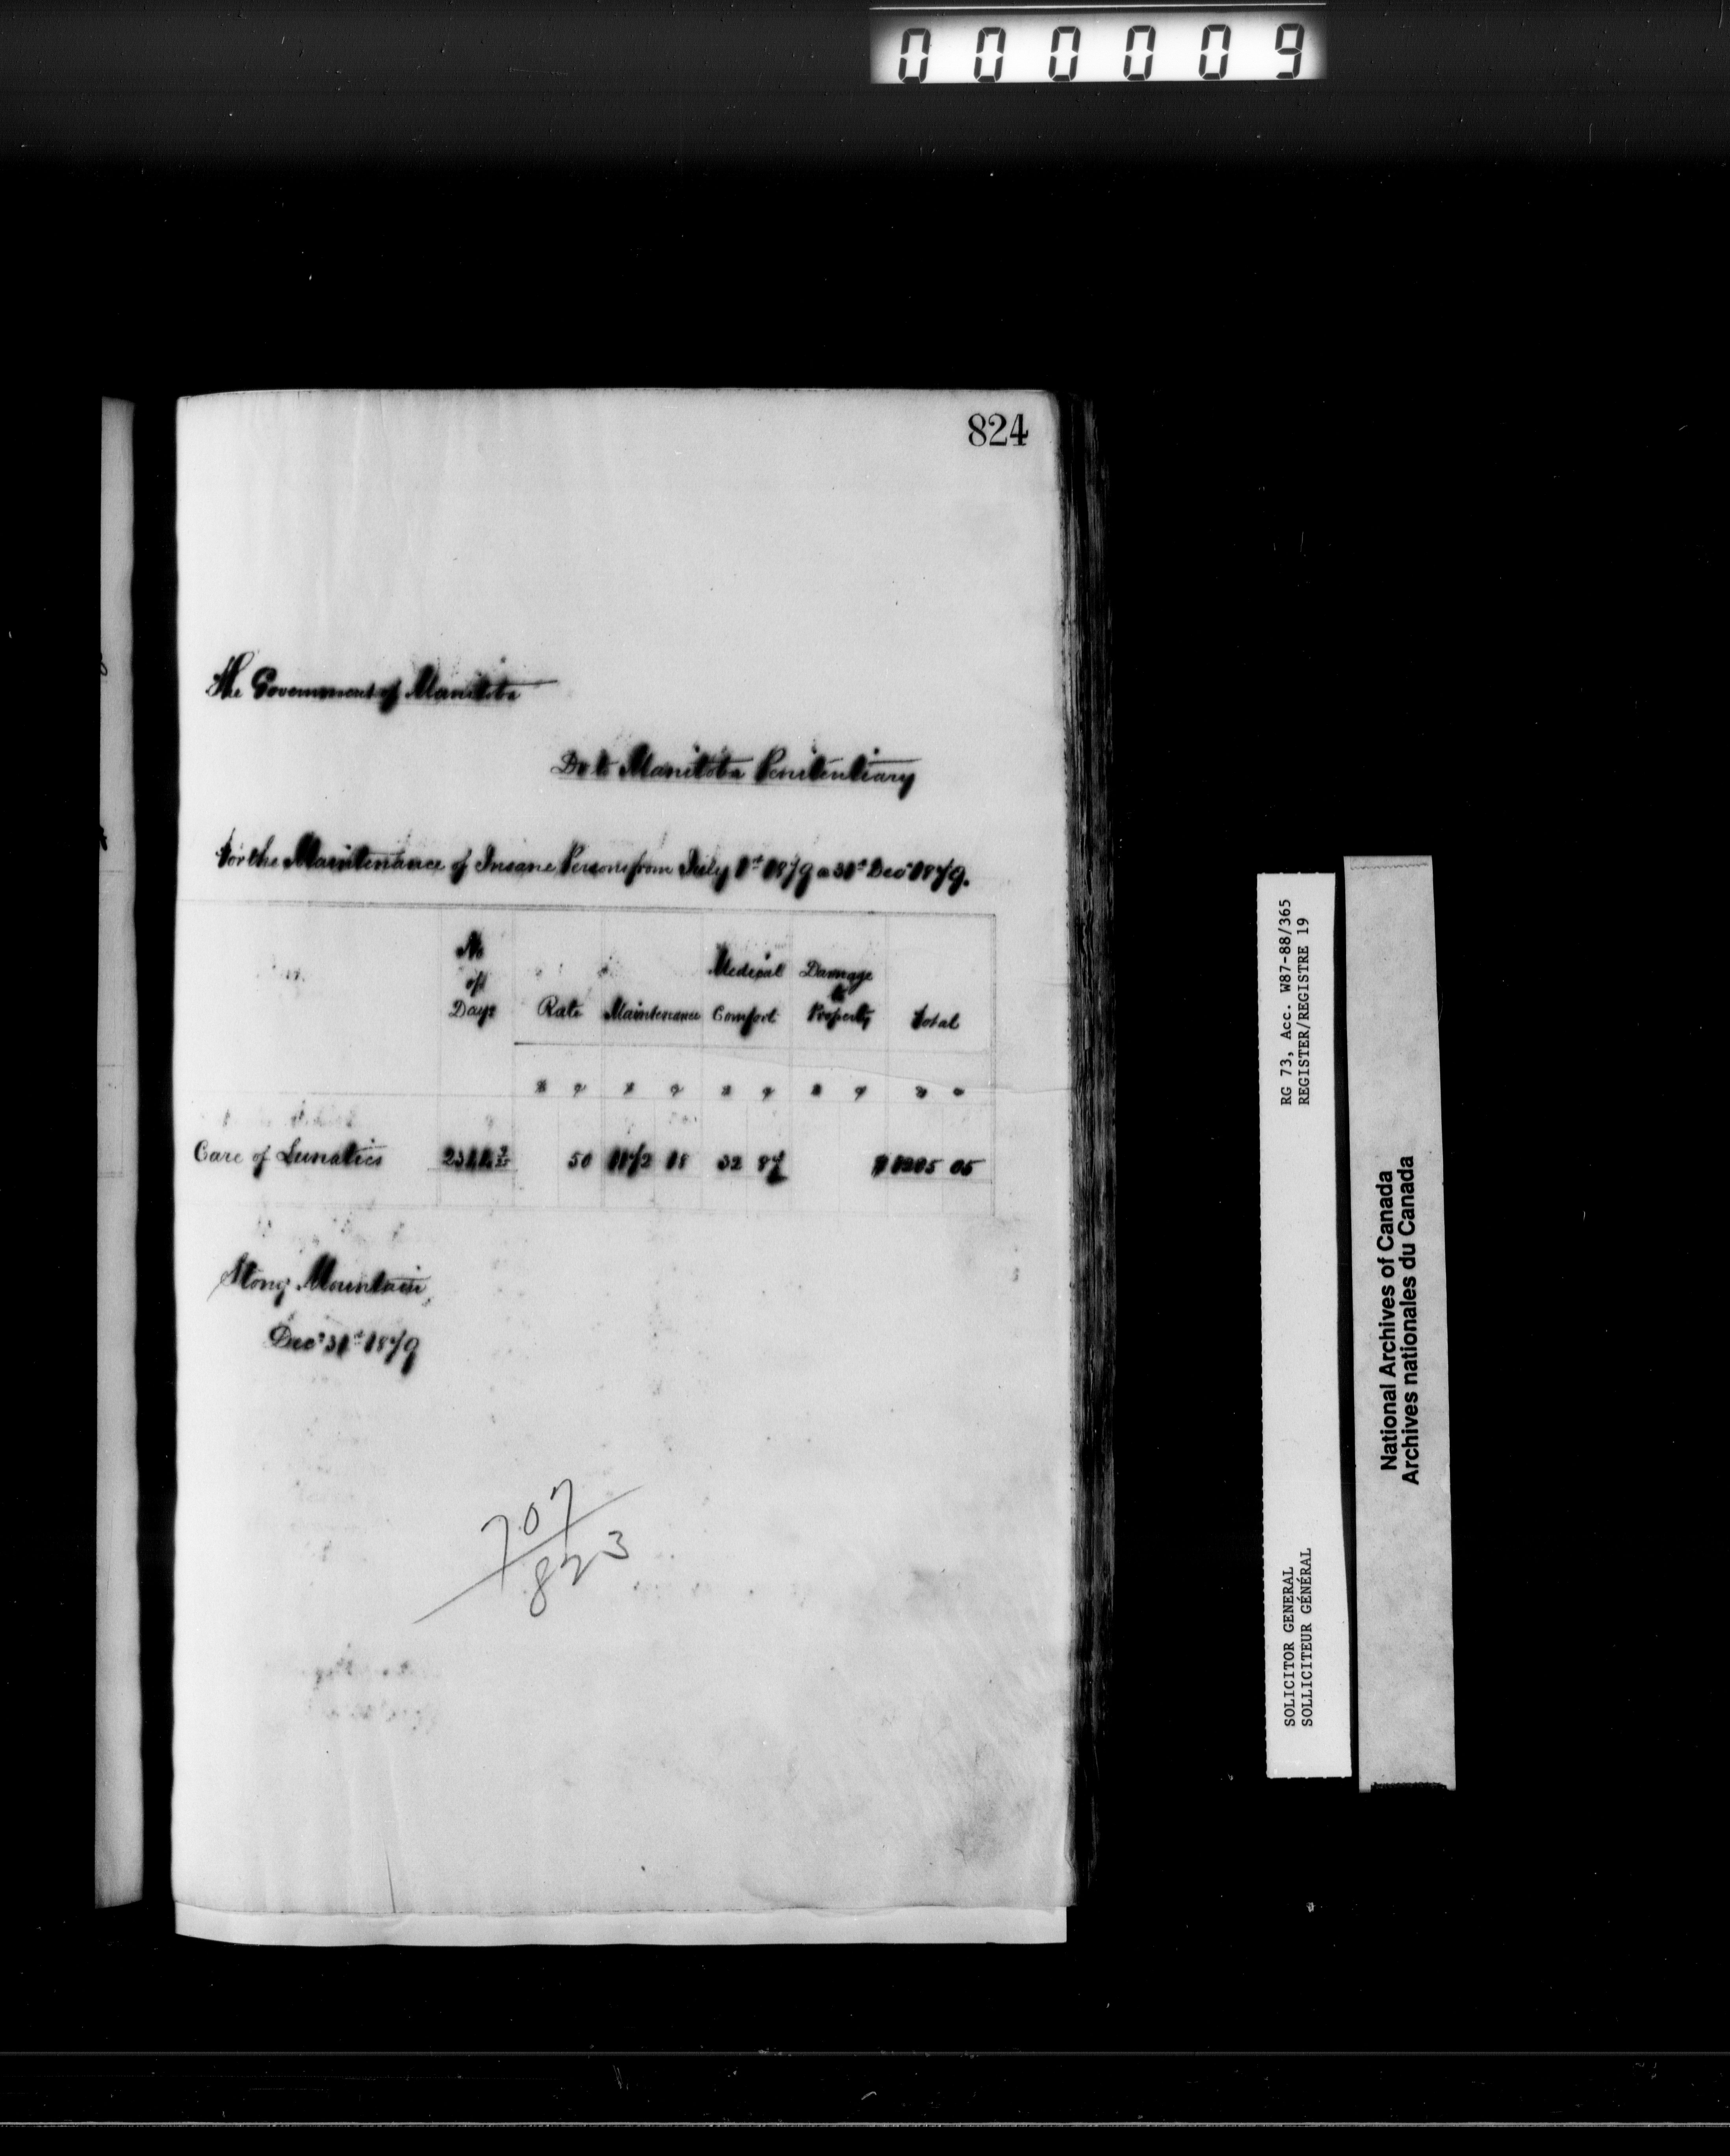 000009
824
The Government of Manitoba
Dr to Manitoba Penitentiary
For the Maintenance of Insane Persons from July 1st 1879 a 31st Decr 1879.
No of Days Rate Maintenance Medical Comfort Damage to Property Total
$ ¢ $ ¢ $ ¢ $ ¢ $ ¢
Care of Lunatics 50 1172 18 32 87 $ 1205 05
Stony Mountain,
Decr 31st 1879
707
823
RG 73, Acc. W87-88/365
REGISTER/REGISTRE 19
SOLICITOR GENERAL
SOLLICITEUR GÉNÉRAL
National Archives of Canada
Archives nationales du Canada